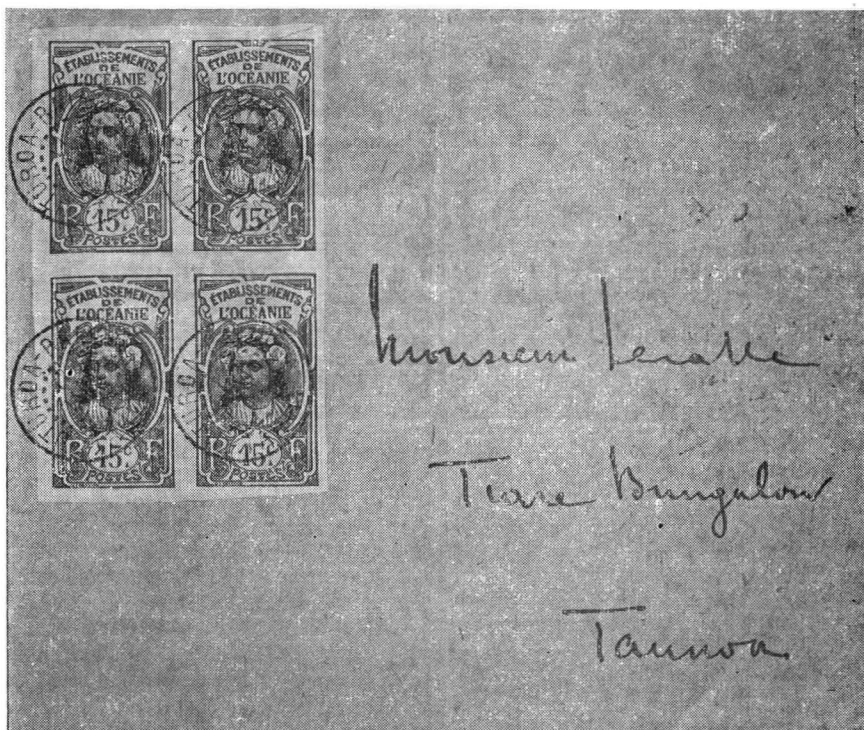 ÉTABLISSEMENTS
DE
L'OCÉANIE
R 15c F
POSTES
ÉTABLISSEMENTS
DE
L'OCÉANIE
R 15c F
POSTES
ÉTABLISSEMENTS
DE
L'OCÉANIE
R 15c F
POSTES
ÉTABLISSEMENTS
DE
L'OCÉANIE
R 15c F
POSTES
Monsieur
Tiare Bungalow
Taunoa